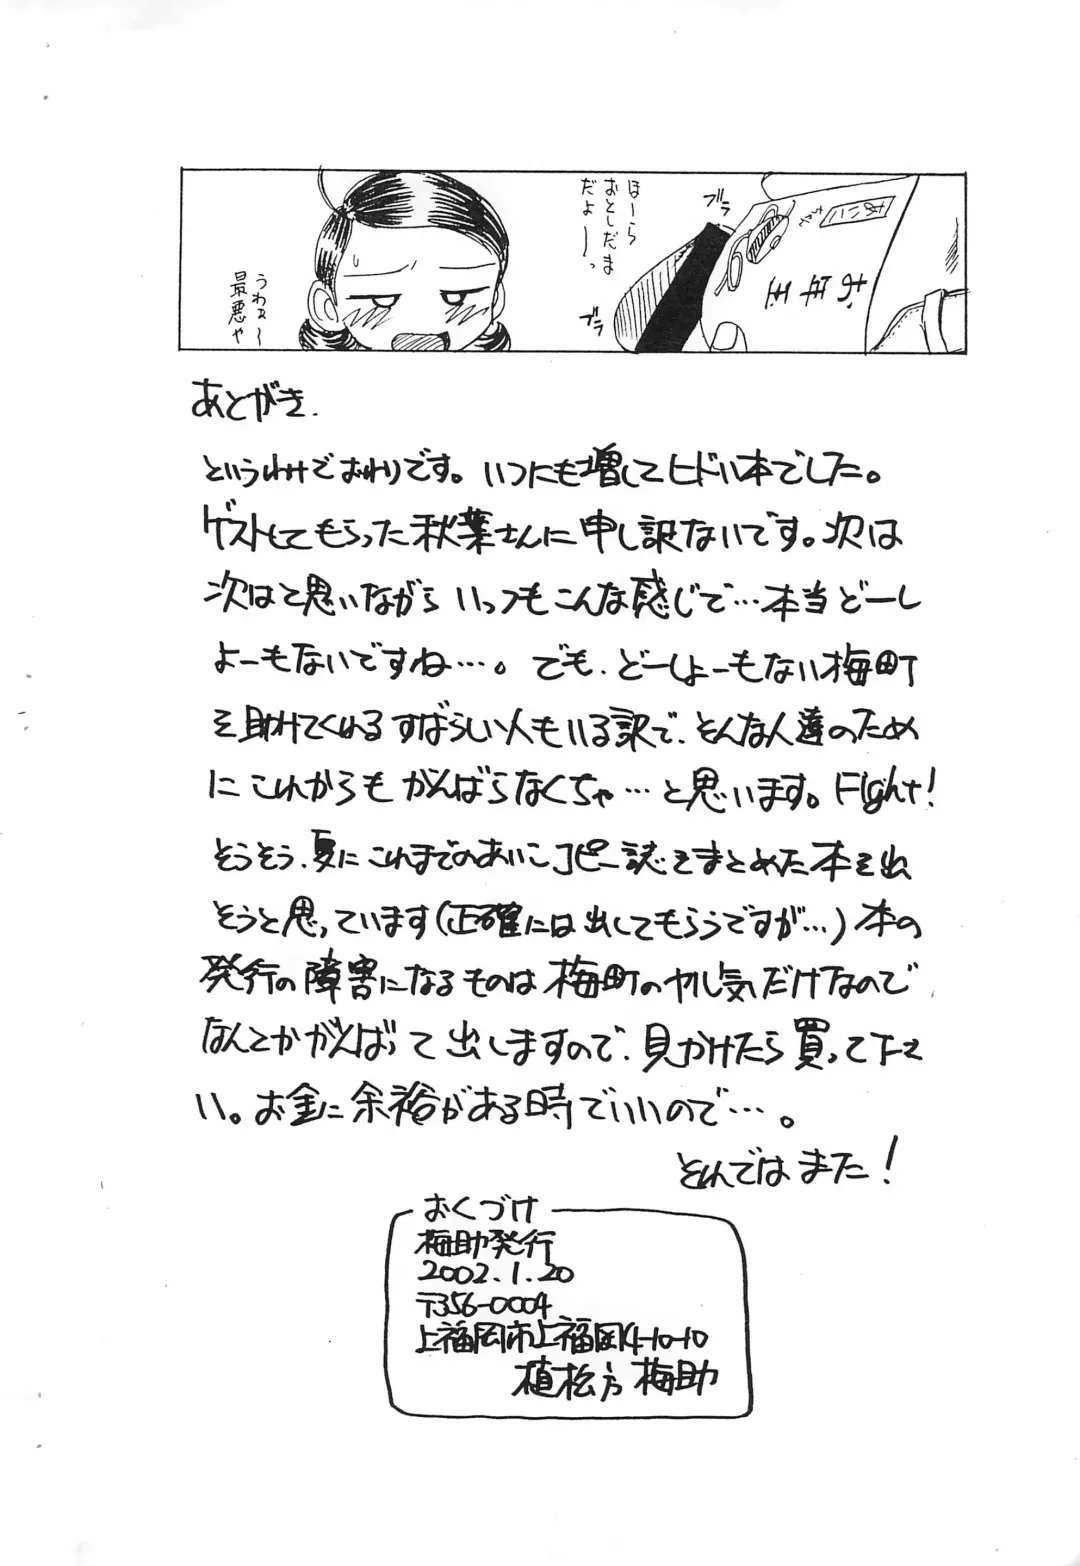 ほーら
おとしだま
だよ――っ
ブラ
ブラ
あいこ
ちゃん
うわぁ~
最悪や
あとがき.
というわけでおわりです。いつにも増してヒドい本でした。
ゲストしてもらった秋葉さんに申し訳ないです。次は
次はと思いながらいつもこんな感じで…本当どーし
よーもないですね…。でも、どーしよーもない梅町
を助けてくれるすばらしい人もいる訳で、そんな人達のため
にこれからもがんばらなくちゃ…と思います。Fight!
そうそう、夏にこれまでのあいこコピー誌をまとめた本を出
そうと思っています(正確には出してもらうですが…)本の
発行の障害になるものは梅町のヤル気だけなので
なんとかがんばって出しますので、見かけたら買って下さ
い。お金に余裕がある時でいいので…。
それではまた!
おくづけ
梅助発行
2002.1.20
〒356-0004
上福岡市上福岡4-10-10
植松方 梅助